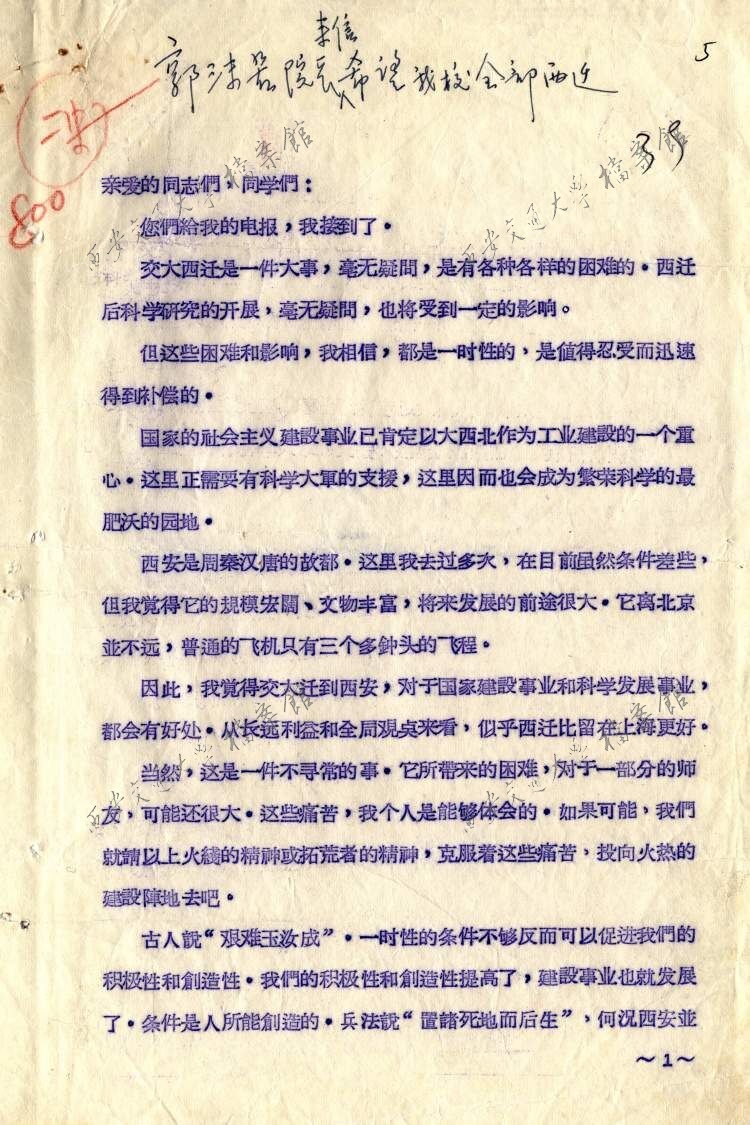 5
来信
郭沫若院长希望我校全部西迁
39
800
亲爱的同志們，同学們：
您們給我的电报，我接到了。
交大西迁是一件大事，毫无疑問，是有各种各样的困难的。西迁
后科学研究的开展，毫无疑問，也将受到一定的影响。
但这些困难和影响，我相信，都是一时性的，是値得忍受而迅速
得到补偿的。
国家的社会主义建設事业已肯定以大西北作为工业建設的一个重
心。这里正需要有科学大軍的支援，这里因而也会成为繁荣科学的最
肥沃的园地。
西安是周秦汉唐的故都。这里我去过多次，在目前虽然条件差些，
但我覚得它的規模宏闊、文物丰富，将来发展的前途很大。它离北京
並不远，普通的飞机只有三个多鈡头的飞程。
因此，我覚得交大迁到西安，对于国家建設事业和科学发展事业，
都会有好处。从长远利益和全局观点来看，似乎西迁比留在上海更好。
当然，这是一件不寻常的事。它所带来的困难，对于一部分的师
友，可能还很大。这些痛苦，我个人是能够体会的。如果可能，我們
就請以上火綫的精神或拓荒者的精神，克服着这些痛苦，投向火热的
建設陣地去吧。
古人說“艰难玉汝成”。一时性的条件不够反而可以促进我們的
积极性和創造性。我們的积极性和創造性提高了，建設事业也就发展
了。条件是人所能創造的。兵法說“置諸死地而后生”，何况西安並
～1～
西安交通大学檔案館
西安交通大学檔案館
西安交通大学檔案館
西安交通大学檔案館